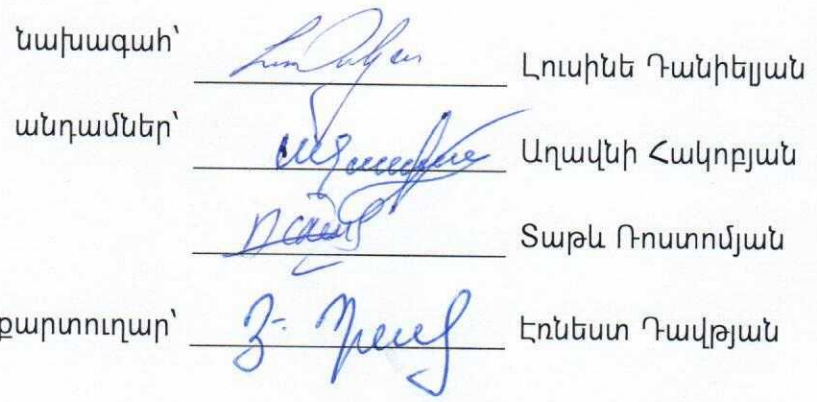 նախագահ՝ Լուսինե Դանիելյան
անդամներ՝ Աղավնի Հակոբյան
Տաթև Ռոստոմյան
քարտուղար՝ Էռնեստ Դավթյան